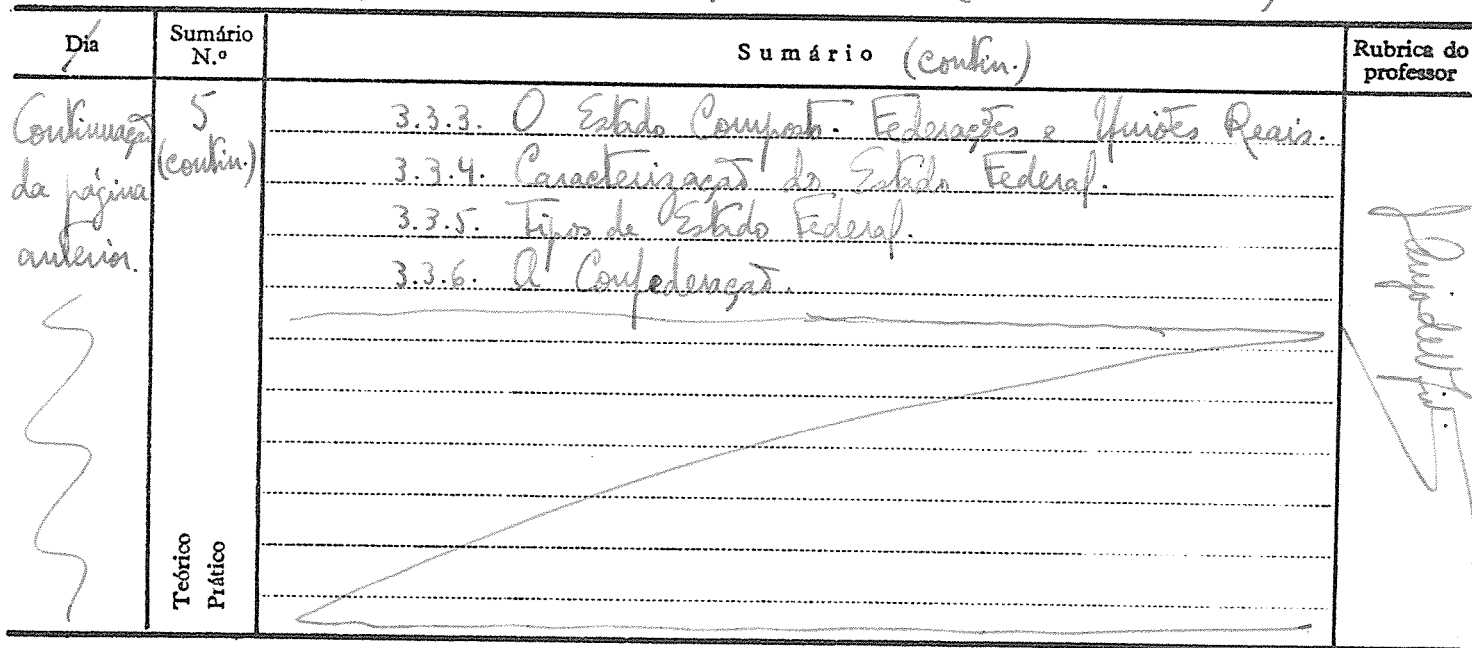 Dia
Sumário N.º
Sumário (contin.)
Rubrica do professor
Continuação da página anterior.
5 (contin.)
3.3.3. O Estado Composto. Federações e Uniões Reais.
3.3.4. Caracterização do Estado Federal.
3.3.5. Tipos de Estado Federal.
3.3.6. A Confederação.
Teórico
Prático